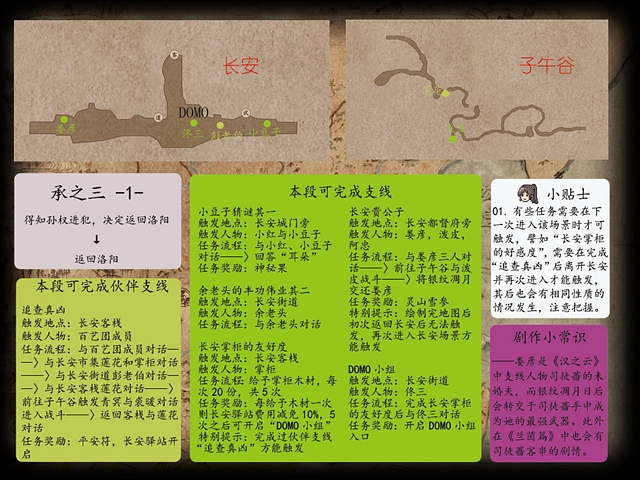 长安
子午谷
DOMO
娄彦
佟三
彭老伯
小豆子
承之三 -1-
得知孙权进犯，决定返回洛阳
返回洛阳
本段可完成伙伴支线
追查真凶
触发地点：长安客栈
触发人物：百艺团成员
任务流程：与百艺团成员对话—
—〉与长安市集莲花和掌柜对话
——〉与长安街道彭老伯对话—
—〉与长安客栈莲花对话——〉
前往子午谷触发青冥与裘暖对话
进入战斗——〉返回客栈与莲花
对话
任务奖励：平安符，长安驿站开
启
本段可完成支线
小豆子猜谜其一
触发地点：长安城门旁
触发人物：小红与小豆子
任务流程：与小红、小豆子
对话——〉回答“耳朵”
任务奖励：神秘果
余老头的丰功伟业其二
触发地点：长安街道
触发人物：余老头
任务流程：与余老头对话
长安掌柜的友好度
触发地点：长安客栈
触发人物：掌柜
任务流程：给予掌柜木材，每
次 20 份，共 5 次
任务奖励：每给予木材一次
则长安驿站费用减免 10%，5
次之后可开启“DOMO 小组”
特别提示：完成过伙伴支线
“追查真凶”方能触发
长安贵公子
触发地点：长安都督府旁
触发人物：娄彦，泼皮，
阿忠
任务流程：与娄彦三人对
话——〉前往子午谷与泼
皮战斗——〉将银纹凋月
交还娄彦
任务奖励：灵山雪参
特别提示：绘制完地图后
初次返回长安后无法触
发，再次进入长安场景方
能触发
DOMO 小组
触发地点：长安街道
触发人物：佟三
任务流程：完成长安掌柜
的友好度后与佟三对话
任务奖励：开启 DOMO 小组
入口
小贴士
01. 有些任务需要在下
一次进入该场景时才可
触发，譬如“长安掌柜
的好感度”，需要在完成
“追查真凶”后离开长安
并再次进入才能触发，
其后也会有相同性质的
情况发生，注意把握。
剧作小常识
——娄彦是《汉之云》
中支线人物司徒蔷的未
婚夫，而银纹凋月日后
会转交于司徒蔷手中成
为她的最强武器。此外
在《兰茵篇》中也会有
司徒蔷客串的剧情。